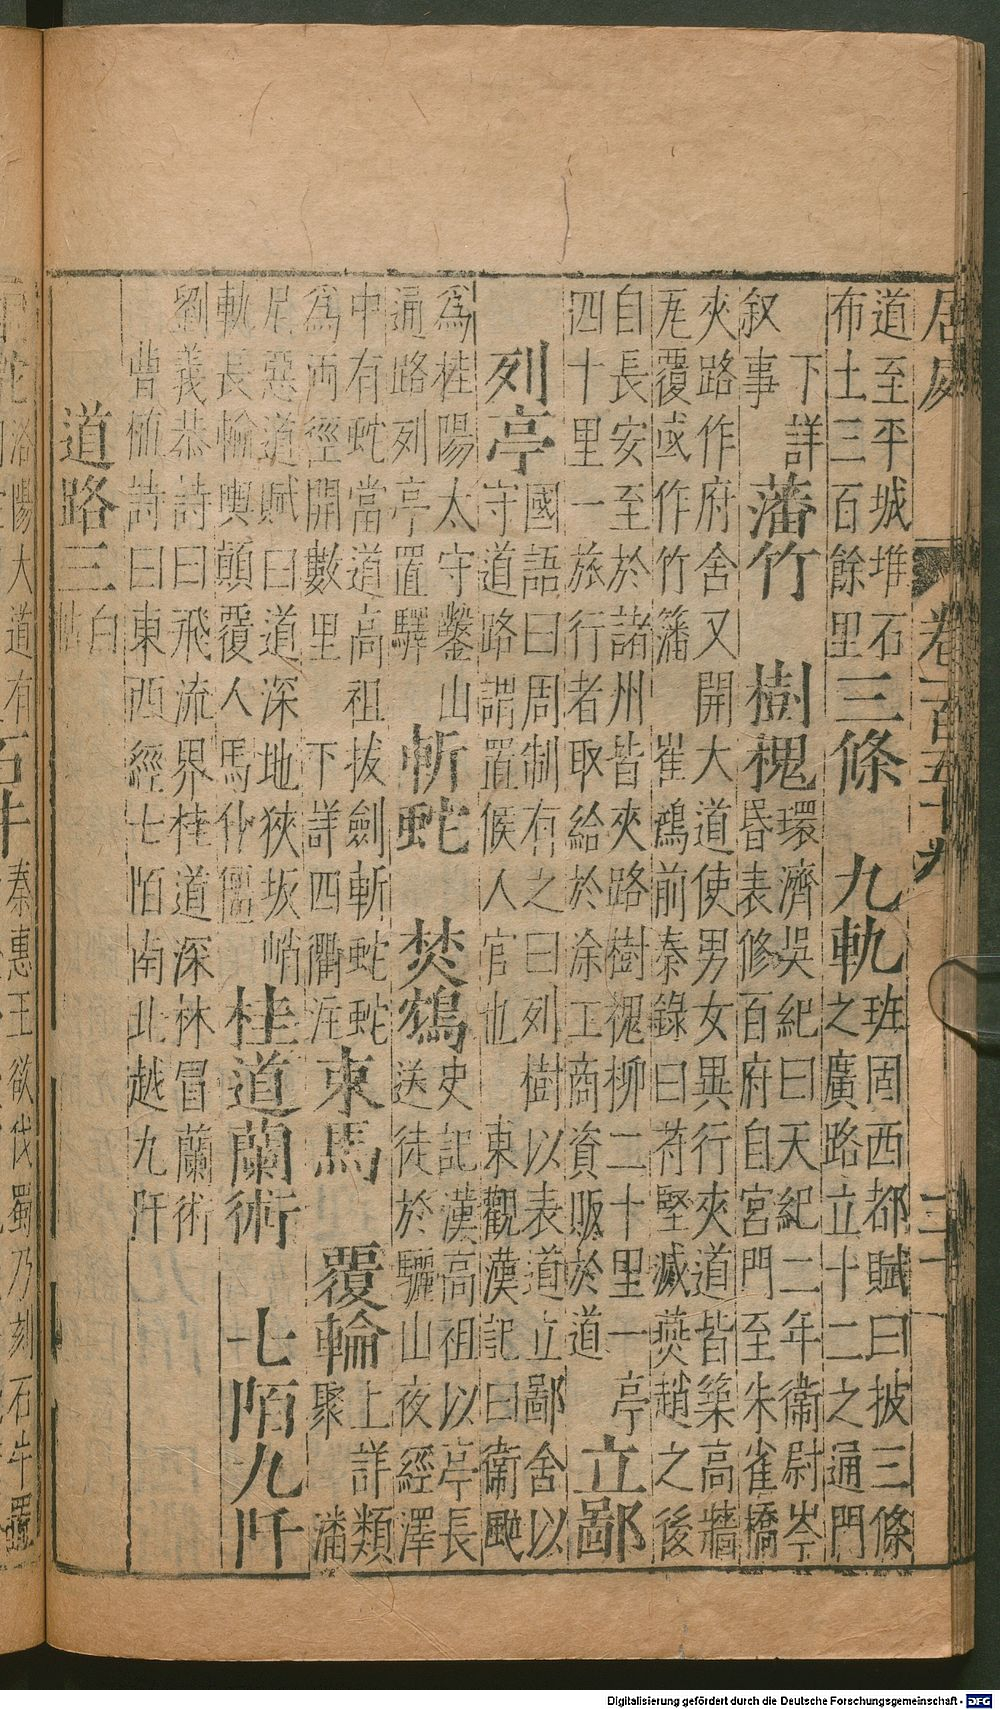 居處 卷一百五十九 三十
道至平城堆石
布土三百餘里
三條 九軌
班固西都賦曰披三條
之廣路立十二之通門
下詳
叙事
藩竹 樹槐
環濟吳紀曰天紀二年衞尉岑
昏表修百府自宮門至朱雀橋
夾路作府舍又開大道使男女異行夾道皆築高牆
瓦覆或作竹籓 崔鴻前秦錄曰苻堅滅燕趙之後
自長安至於諸州皆夾路樹槐柳二十里一亭
四十里一旅行者取給於涂工商資販於道
立鄙
列亭
國語曰周制有之曰列樹以表道立鄙舍以
守道路謂置候人官也 東觀漢記曰衞颯
爲桂陽太守鑿山
通路列亭置驛
斬蛇 焚鶴
史記漢高祖以亭長
送徒於驪山夜經澤
中有蛇當道高祖拔劍斬蛇蛇
爲兩徑開數里 下詳四衢注
束馬 覆輪
上詳類
聚 潘
尼惡道賦曰道深地狹坂峭
軌長輪輿顛覆人馬仆僵
桂道蘭術 七陌九阡
劉義恭詩曰飛流界桂道深林冒蘭術
曹植詩曰東西經七陌南北越九阡
道路三 白帖
洛陽大道有
石牛
秦惠王欲伐蜀乃刻石牛置
Digitalisierung gefördert durch die Deutsche Forschungsgemeinschaft - DFG